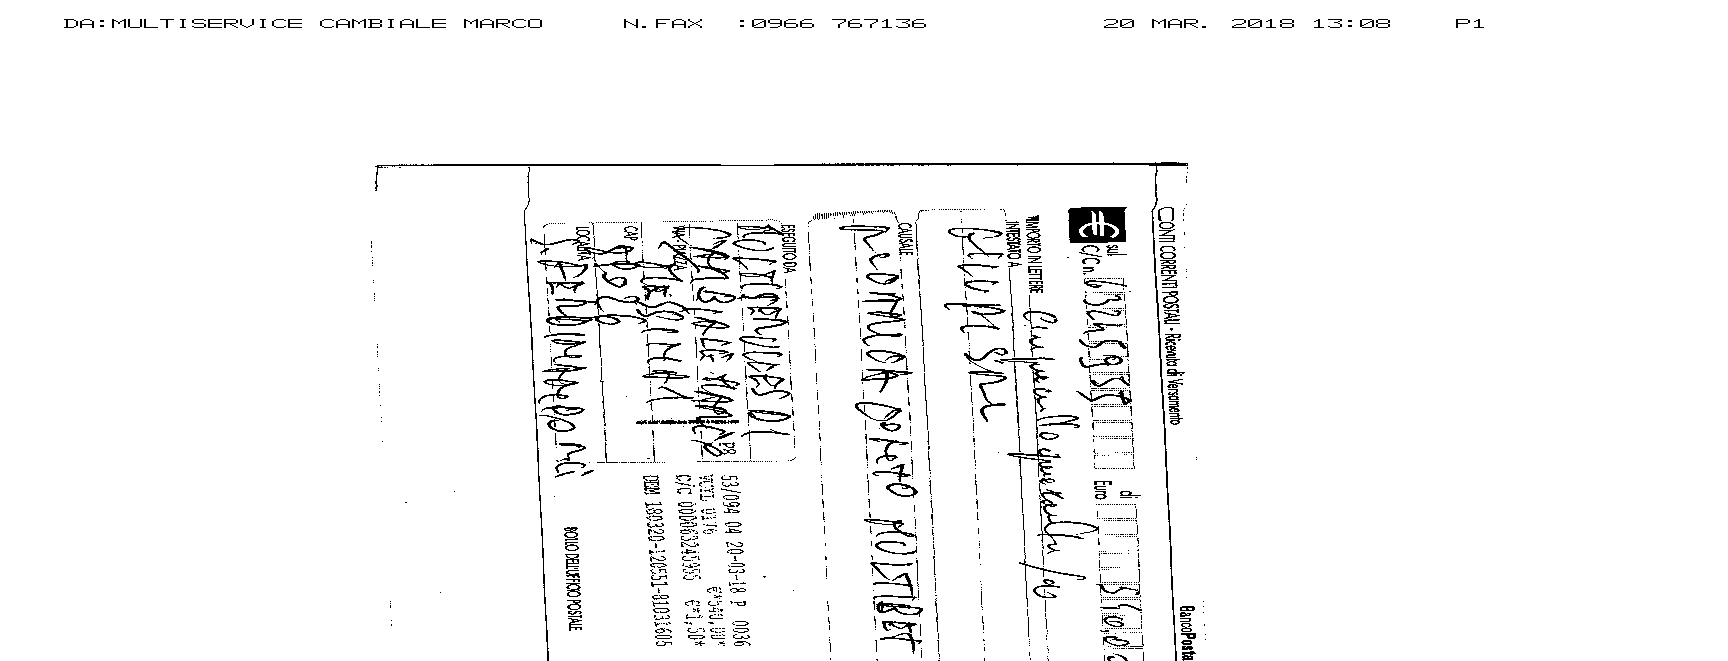 DA:MULTISERVICE CAMBIALE MARCO N.FAX :0966 767136 20 MAR. 2018 13:08 P1
CONTI CORRENTI POSTALI - Ricevuta di Versamento BancoPosta
sul C/C n. 63245955 di Euro 540,00
IMPORTO IN LETTERE Cinquecentoquaranta/00
INTESTATO A
SRL
CAUSALE
RICARICA CONTO MULTIBET
ESEGUITO DA
MULTISERVICES DI
CAMBIALE MARCO
VIA - PIAZZA
MESSINA
CAP
LOCALITÀ
S. FERDINANDO RC
53/094 04 20-03-18 P 0036
VCYL 0176 €*540,00*
C/C 000063245955 €*1,50*
180320-120551-81031605
BOLLO DELL'UFFICIO POSTALE